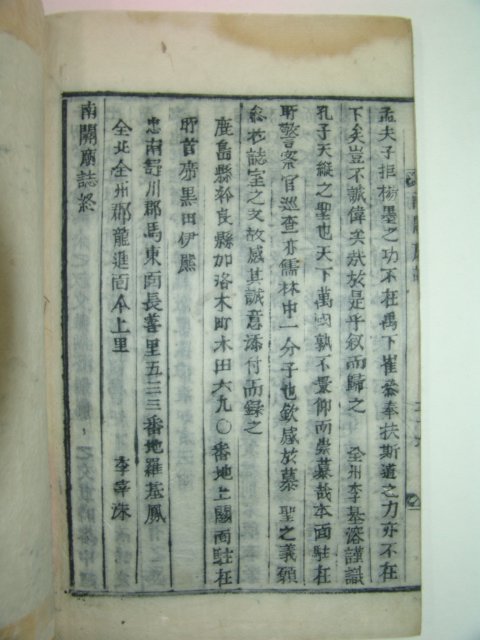 孟夫子拒楊墨之功不在禹下崔參奉扶斯道之力亦不在
下矣豈不誠偉矣哉於是乎叙而歸之　全州李基溶謹識
孔子天縱之聖也天下萬國孰不景仰南崇慕哉本面駐在
所警察官巡査亦儒林中一分子也欽感於慕　聖之義願
參於誌室之文故感其誠意添付而錄之
鹿島縣姶良縣加洛木町木田六九〇番地上關面駐在
所首席黑田伊熊
忠南舒川郡馬東面長善里五三三番地羅基鳳
全北全州郡龍進面仐上里　李幸洙
南關廟誌終